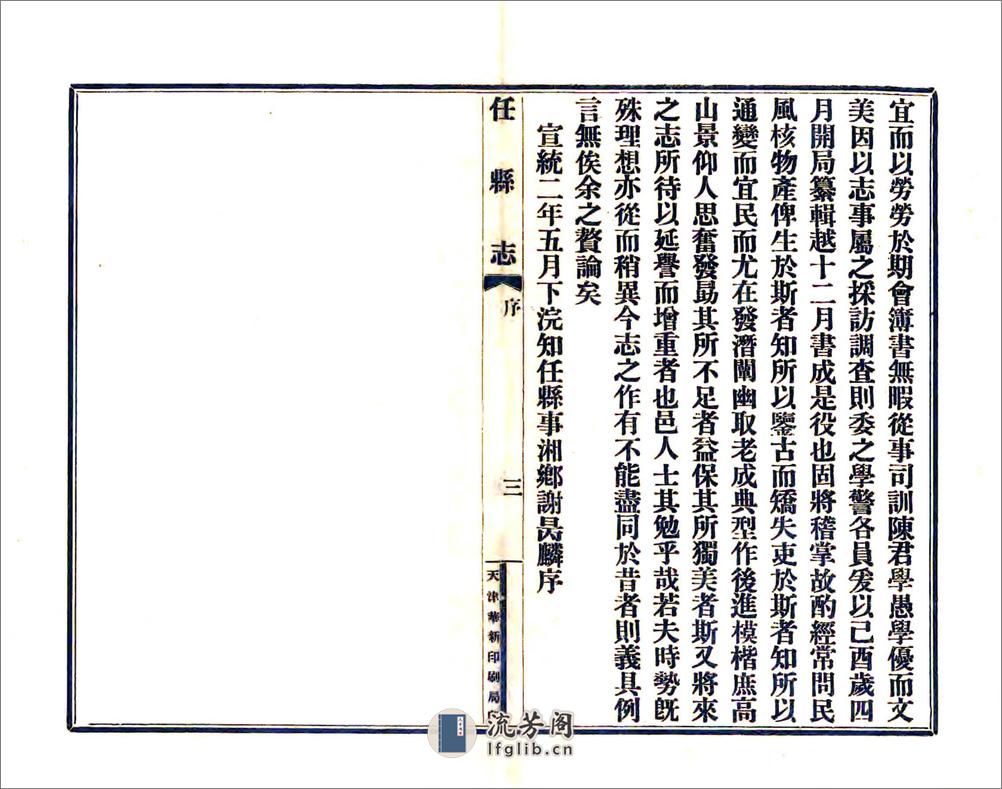 宜而以勞勞於期會簿書無暇從事司訓陳君學愚學優而文
美因以志事屬之採訪調查則委之學警各員爰以己酉歲四
月開局纂輯越十二月書成是役也固將稽掌故酌經常問民
風核物產俾生於斯者知所以鑒古而矯失吏於斯者知所以
通變而宜民而尤在發潛闡幽取老成典型作後進模楷庶高
山景仰人思奮發勗其所不足者益保其所獨美者斯又將來
之志所待以延譽而增重者也邑人士其勉乎哉若夫時勢旣
殊理想亦從而稍異今志之作有不能盡同於昔者則義具例
言無俟余之贅論矣
宣統二年五月下浣知任縣事湘鄉謝昺麟序
任縣志
序
三
天津華新印刷局
流芳阁
lfglib.cn